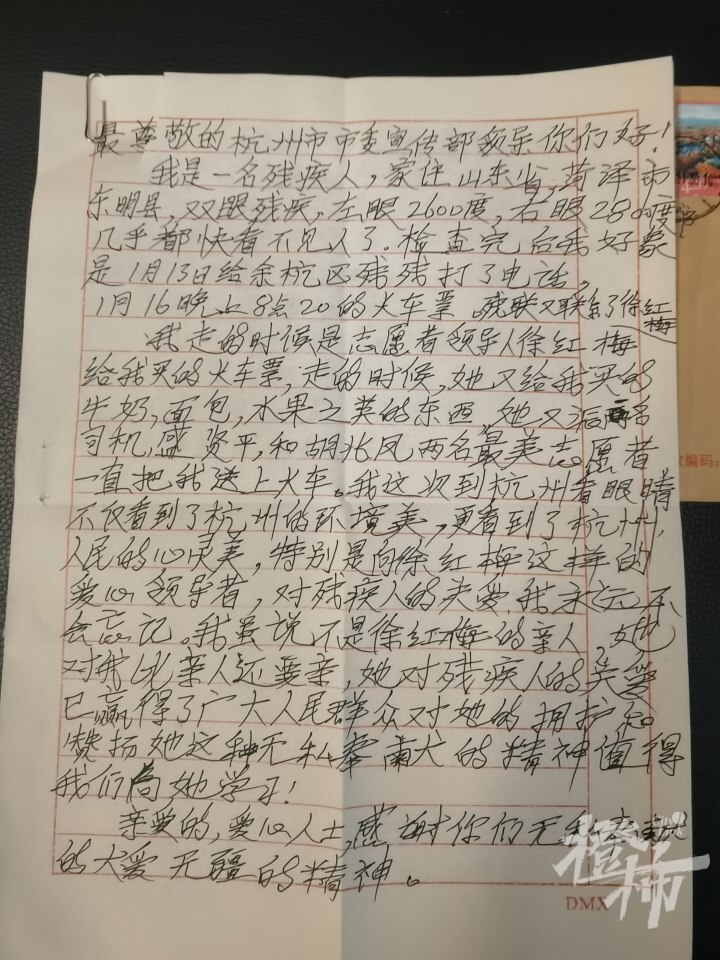 最尊敬的杭州市市委宣传部领导你们好！
我是一名残疾人，家住山东省，菏泽市
东明县，双眼残疾，左眼2600度，右眼2800度
几乎都快看不见人了.检查完后我好象
是1月13日给余杭区残残打了电话，
1月16晚上8点20的火车票。残联又联系了徐红梅
我走的时候是志愿者领导人徐红梅
给我买的火车票，走的时候，她又给我买的
牛奶，面包，水果之类的东西，她又派两名
司机，盛贤平，和胡兆凤两名最美志愿者
一直把我送上火车。我这次到杭州看眼睛
不仅看到了杭州的环境美，更看到了杭州，
人民的心灵美，特别是向徐红梅这样的
爱心领导者，对残疾人的关爱，我永远不
会忘记。我虽说不是徐红梅的亲人，她
对我比亲人还要亲，她对残疾人的关爱
已赢得了广大人民群众对她的拥护和
赞扬她这种无私奉献的精神值得
我们向她学习！
亲爱的，爱心人士，感谢你们无私
的大爱无疆的精神。
DMX
橙柿
编码：